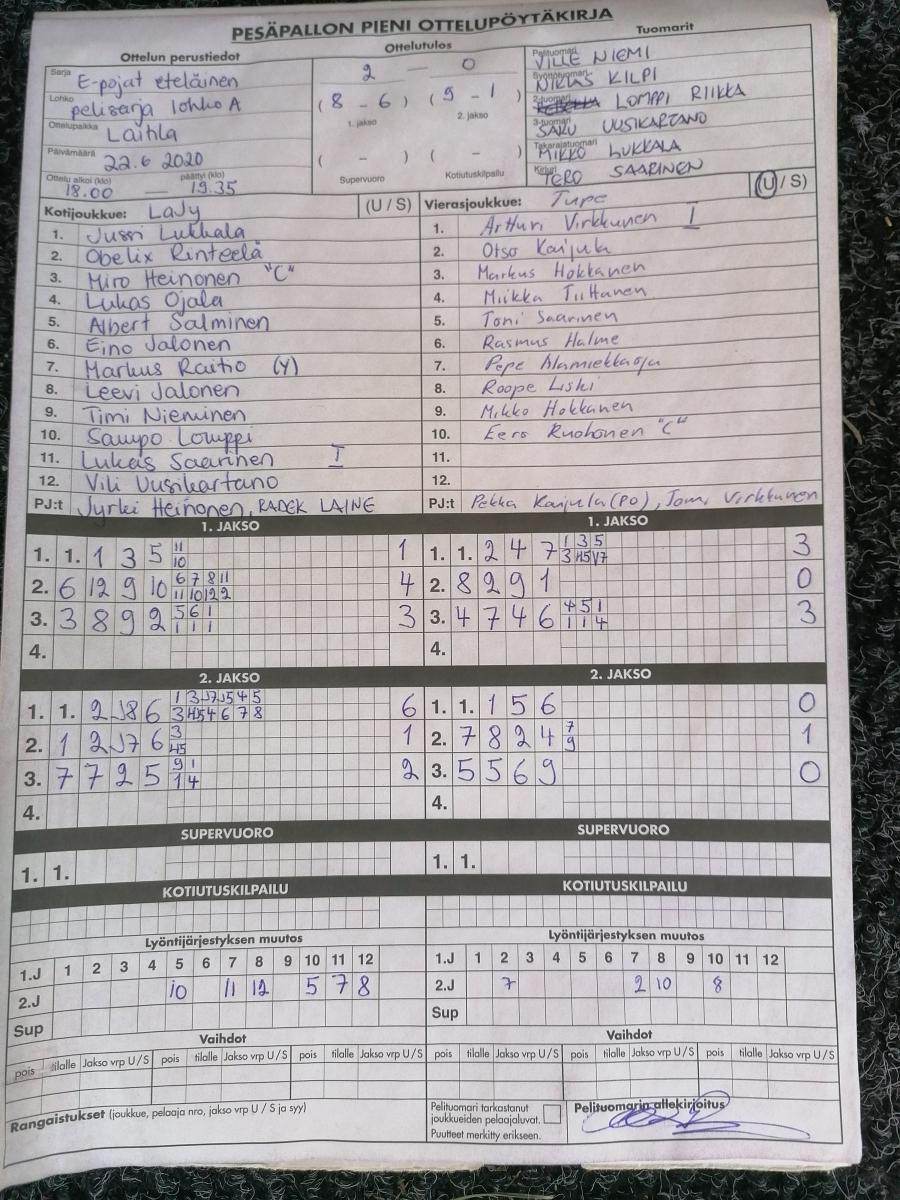 PESÄPALLON PIENI OTTELUPÖYTÄKIRJA
Ottelun perustiedot
Ottelutulos
Tuomarit
Sarja E-pojat eteläinen
Lohko pelisarja lohko A
Ottelupaikka Laitila
Päivämäärä 22.6 2020
Ottelu alkoi (klo) päättyi (klo)
18.00 — 19.35
2 — 0
(8 - 6) (9 - 1)
1. jakso 2. jakso
( - ) ( - )
Supervuoro Kotiutuskilpailu
Pelituomari VILLE NIEMI
Syöttötuomari NIKLAS KILPI
2-tuomari LOMPPI RIIKKA
3-tuomari SAKU UUSIKARTANO
Takarajatuomari MIKKO LUKKALA
Kirjuri TERO SAARINEN
Kotijoukkue: LaJy (U / S)
1. Jussi Lukkala
2. Obelix Rinteelä
3. Miro Heinonen "C"
4. Lukas Ojala
5. Albert Salminen
6. Eino Jalonen
7. Markus Raitio (Y)
8. Leevi Jalonen
9. Timi Nieminen
10. Sampo Lomppi
11. Lukas Saarinen I
12. Vili Uusikartano
PJ:t Jyrki Heinonen, RADEK LAINE
Vierasjoukkue: Tupe (U / S)
1. Artturi Virkkunen I
2. Otso Karjula
3. Markus Hokkanen
4. Miikka Tiittanen
5. Toni Saarinen
6. Rasmus Halme
7. Pepe Alamiekkaoja
8. Roope Liski
9. Mikko Hokkanen
10. Eero Ruohonen "C"
11.
12.
PJ:t Pekka Karjula (PO), Tomi Virkkunen
1. JAKSO
1. 1. 1 3 5 11 1
10
2. 6 12 9 10 6 7 8 11 4
11 10 12 2
3. 3 8 9 2 5 6 1 3
1 1 1
4.
1. JAKSO
1. 1. 2 4 7 1 3 5 3
3 45 V7
2. 8 2 9 1 0
3. 4 7 4 6 4 5 1 3
1 1 4
4.
2. JAKSO
1. 1. 2 J8 6 1 3 J7 J5 4 5 6
3 45 4 6 7 8
2. 1 2 J7 6 3 1
45
3. 7 7 2 5 9 1 2
1 4
4.
2. JAKSO
1. 1. 1 5 6 0
2. 7 8 2 4 7 1
9
3. 5 5 6 9 0
4.
SUPERVUORO
1. 1.
SUPERVUORO
1. 1.
KOTIUTUSKILPAILU
KOTIUTUSKILPAILU
Lyöntijärjestyksen muutos
1.J 1 2 3 4 5 6 7 8 9 10 11 12
2.J 10 11 12 5 7 8
Sup
Lyöntijärjestyksen muutos
1.J 1 2 3 4 5 6 7 8 9 10 11 12
2.J 7 2 10 8
Sup
Vaihdot
pois tilalle Jakso vrp U/S pois tilalle Jakso vrp U/S pois tilalle Jakso vrp U/S
Vaihdot
pois tilalle Jakso vrp U/S pois tilalle Jakso vrp U/S pois tilalle Jakso vrp U/S
Rangaistukset (joukkue, pelaaja nro, jakso vrp U / S ja syy)
Pelituomari tarkastanut
joukkueiden pelaajaluvat.
Puutteet merkitty erikseen.
Pelituomarin allekirjoitus